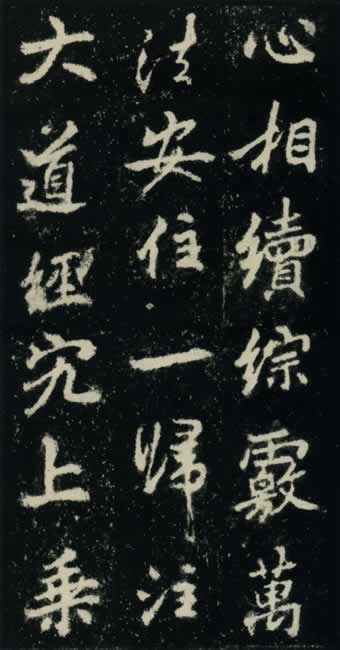 心相續綜覈萬
法安住一歸注
大道經究上乘